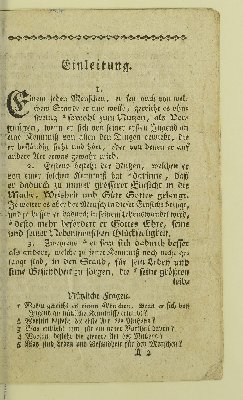 Einleitung.
1.
Einem jeden Menschen, er sey auch von wel-
chem Stande er nur wolle, gereicht es ohne
sowohl zum Nutzen, als Ver-
gnügen, wenn er sich von seiner ersten Jugend an
eine Kenntniß von allen den Dingen erwirbt, die
er beständig sieht und hört, oder von denen er auf
andere Art etwas gewahr wird.
2. Erstens besteht der Nutzen, welchen er
von einer solchen Kenntniß hat, darinne, daß
er dadurch zu immer größerer Einsicht in die
Macht, Weisheit und Güte Gottes gelangt.
Je weiter es aber der Mensch in dieser Einsicht bringt,
und je besser er dadurch in seinem Lebenswandel wird,
desto mehr befördert er Gottes Ehre, seine
und seiner Nebenmenschen Glückseligkeit.
3. Zweytens ist er sich dadurch besser
als andere, welche zu jener Kenntniß noch nicht ge-
langt sind, in den Stand, für sein Leben und
seine Gesundheit zu sorgen, die seine größten
Nützliche Fragen.
1 Wozu gereicht es einem Menschen, wenn er sich von
Jugend an nützliche Kenntnisse erwirbt?
2 Worinn besteht der erste
3 Was entsteht
4 Worinn besteht der zweyte
5 Was sind Leben und Gesundheit für den Menschen?
A 2